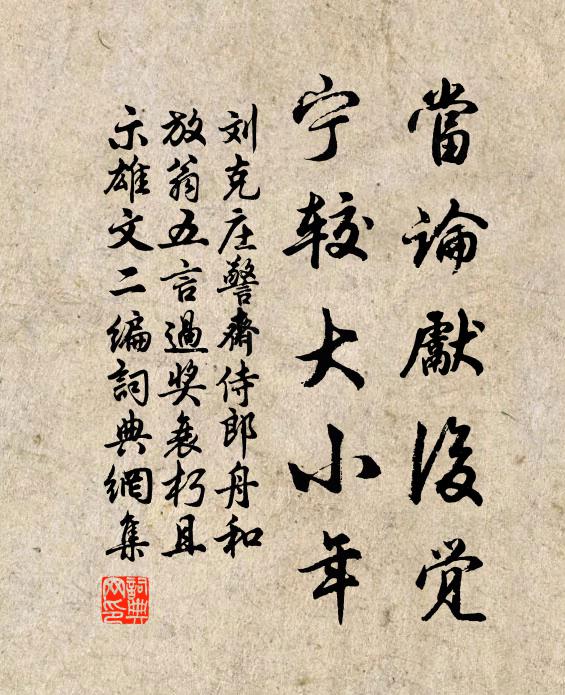 當論獻後觉
宁较大小年
刘克庄警斋侍郎舟和
放翁五言過奖衰朽且
示雄文二编詞典網集
詞典网印